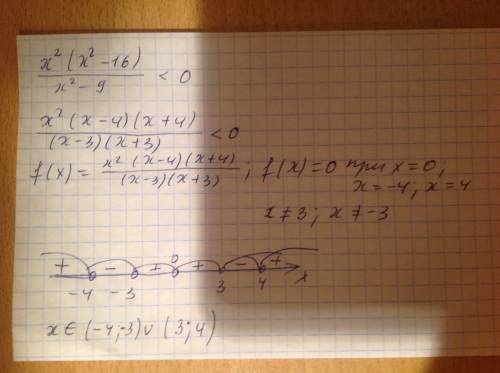 x²(x²-16) / x²-9 < 0
x²(x-4)(x+4) / (x-3)(x+3) < 0
f(x) = x²(x-4)(x+4) / (x-3)(x+3) ; f(x)=0 при x=0;
x=-4; x=4
x≠3; x≠-3
+ - + 0 + - +
-4 -3 3 4 x
x∈(-4;-3)∪(3;4)